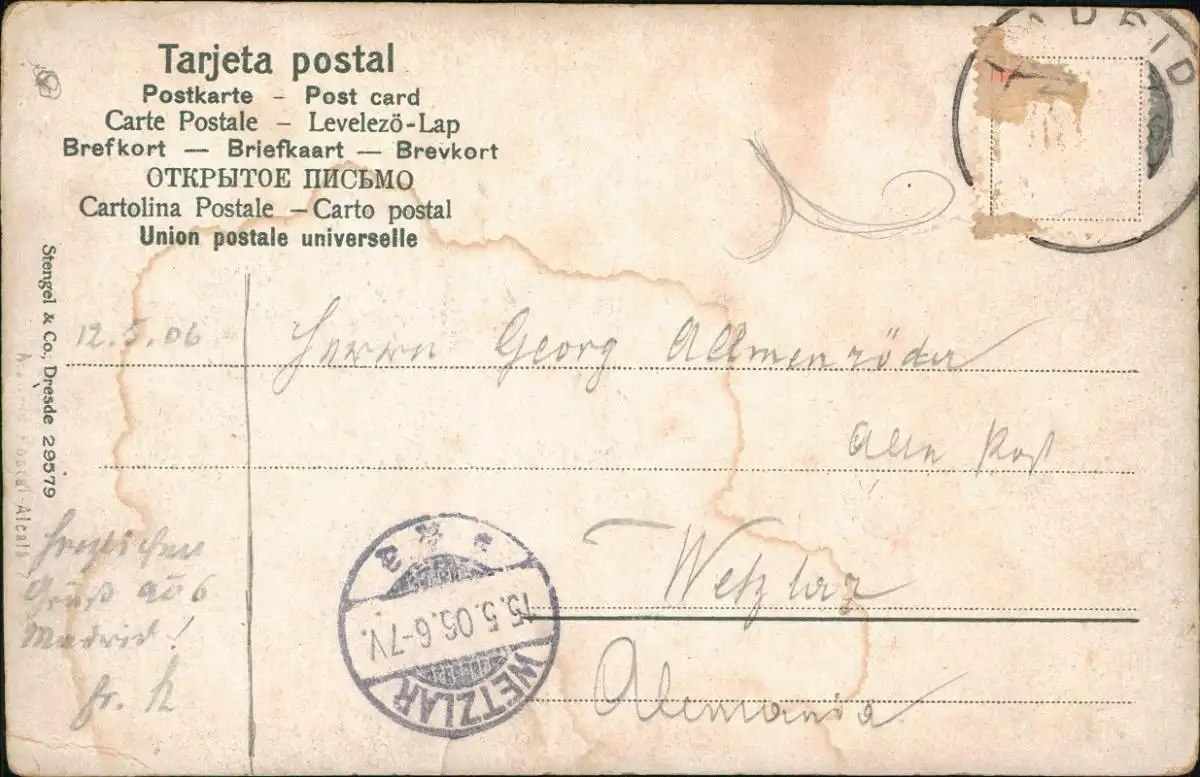 Tarjeta postal
Postkarte – Post card
Carte Postale – Levelező-Lap
Brefkort — Briefkaart — Brevkort
ОТКРЫТОЕ ПИСЬМО
Cartolina Postale – Carto postal
Union postale universelle
Stengel & Co., Dresde 29579
Postal-Alcal
12.5.06
Herrn Georg Allmenröder
Post
Wetzlar
Alemania
Herzlichen
Gruß aus
Madrid!
fr.
15.5.06.6-7V.
WETZLAR